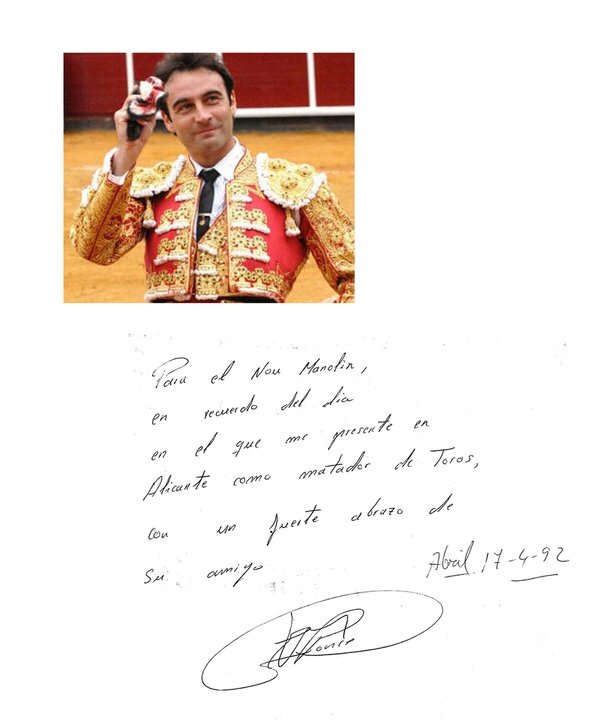 Para el Nou Manolin,
en recuerdo del dia
en el que me presente en
Alicante como matador de Toros,
con un fuerte abrazo de
su amigo
Abril 17-4-92
Ponce